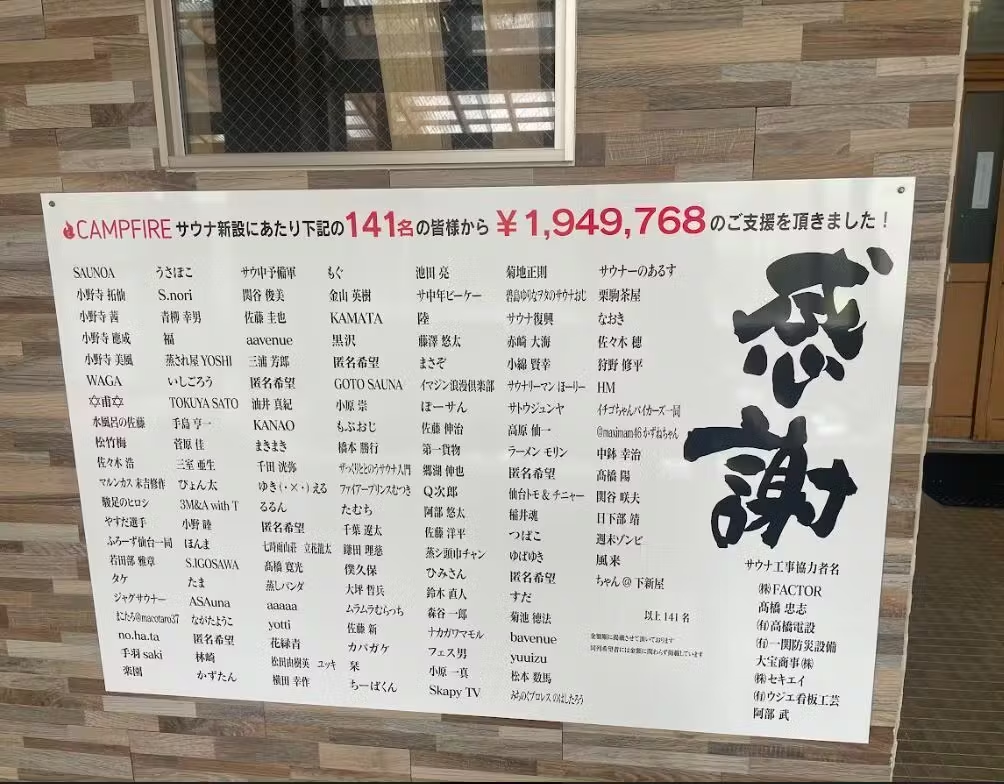 CAMPFIRE サウナ新設にあたり下記の141名の皆様から ¥1,949,768のご支援を頂きました！
SAUNOA
小野寺 拓仙
小野寺 茜
小野寺 應成
小野寺 美風
WAGA
✡甫✡
水風呂の佐藤
松竹梅
佐々木 浩
マルンカス 末吉修作
駿足のヒロシ
やすだ選手
ふろーず仙台一同
若田部 雅章
タケ
ジャグサウナー
まこたろ@macotaro37
no.ha.ta
手羽 saki
楽園
うさぽこ
S.nori
青柳 幸男
福
蒸され屋 YOSHI
いしごろう
TOKUYA SATO
手島 亨一
菅原 佳
三室 亜生
ぴょん太
3M&A with T
小野 睦
ほんま
S.IGOSAWA
たま
ASAuna
ながたようこ
匿名希望
林崎
かずたん
サウ中予備軍
関谷 俊美
佐藤 圭也
aavenue
三浦 芳郎
匿名希望
油井 真紀
KANAO
まきまき
千田 洸弥
ゆき(・×・)える
るるん
匿名希望
七時雨山荘 立花龍太
高橋 寛光
蒸しパンダ
aaaaa
yotti
花緑青
松田由樹英 ユッキ
横田 幸作
もぐ
金山 英樹
KAMATA
黒沢
匿名希望
GOTO SAUNA
小原 崇
もぶおじ
橋本 勝行
ざっくりととのうサウナ入門
ファイアープリンスむつき
たむち
千葉 遼太
鎌田 理慈
僕久保
大坪 哲兵
ムラムラむらっち
佐藤 新
カバガケ
栞
ちーばくん
池田 亮
サ中年ビーケー
陸
藤澤 悠太
まさぞ
イマジン浪漫倶楽部
ぽーサん
佐藤 伸治
第一貨物
郷湖 伸也
Q次郎
阿部 悠太
佐藤 洋平
蒸シ頭巾チャン
ひみさん
鈴木 直人
森谷 一郎
ナカガワマモル
フェス男
小原 一真
Skapy TV
菊地正則
碧島ゆりなヲタのサウナおじ
サウナ復興
赤崎 大海
小綿 賢幸
サウナリーマン ほーリー
サトウジュンヤ
高原 仙一
ラーメン モリン
匿名希望
仙台トモ & チニャー
稲井魂
つばこ
ゆばゆき
匿名希望
すだ
菊池 徳法
bavenue
yuuizu
松本 数馬
みちのくプロレス のはしたろう
サウナーのあるす
栗駒茶屋
なおき
佐々木 穂
狩野 修平
HM
イチゴちゃんバイカーズ一同
@maximam46 かずねちゃん
中鉢 幸治
髙橋 陽
関谷 咲夫
日下部 靖
週末ゾンビ
風来
ちゃん @ 下新屋
以上 141 名
金額順に掲載させて頂いております
同列希望者には金額に関わらず掲載しています
感謝
サウナ工事協力者名
㈱ FACTOR
髙橋 忠志
㈲ 高橋電設
㈲ 一関防災設備
大宝商事㈱
㈱ セキエイ
㈲ ウジエ看板工芸
阿部 武